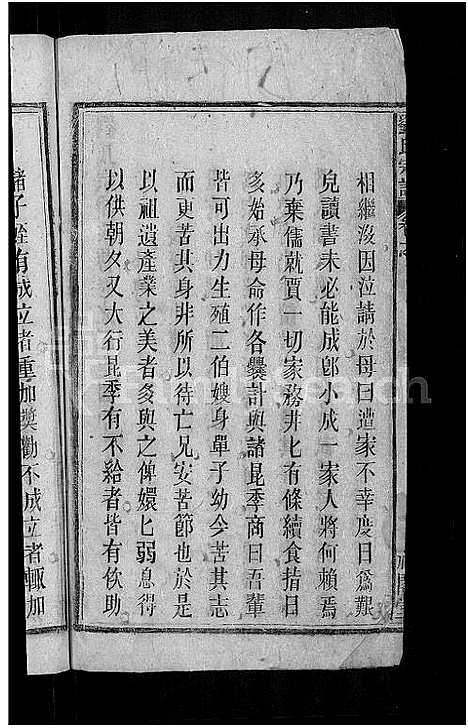 劉氏宗譜
相繼沒因泣請於母曰遭家不幸度日爲艱
皃讀書未必能成卽小成一家人將何賴焉
乃棄儒就賈一切家務井匕有條續食指日
𠔃始承母命作各爨計與諸昆季商曰吾輩
皆可出力生殖二伯嫂身單子幼今苦其志
而更苦其身非所以待亡兄安苦節也於是
以祖遺產業之美者𠔃與之俾嬛匕弱息得
以供朝夕又大行昆季有不給者皆有佽助
諸子姪有成立者重加奬勸不成立者輒加